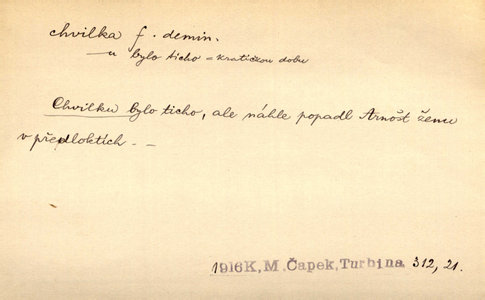 chvilka f. demin.
– u bylo ticho = kratičkou dobu
Chvilku bylo ticho, ale náhle popadl Arnošt ženu
v předloktích – –
1916K, M. Čapek, Turbina 312, 21.